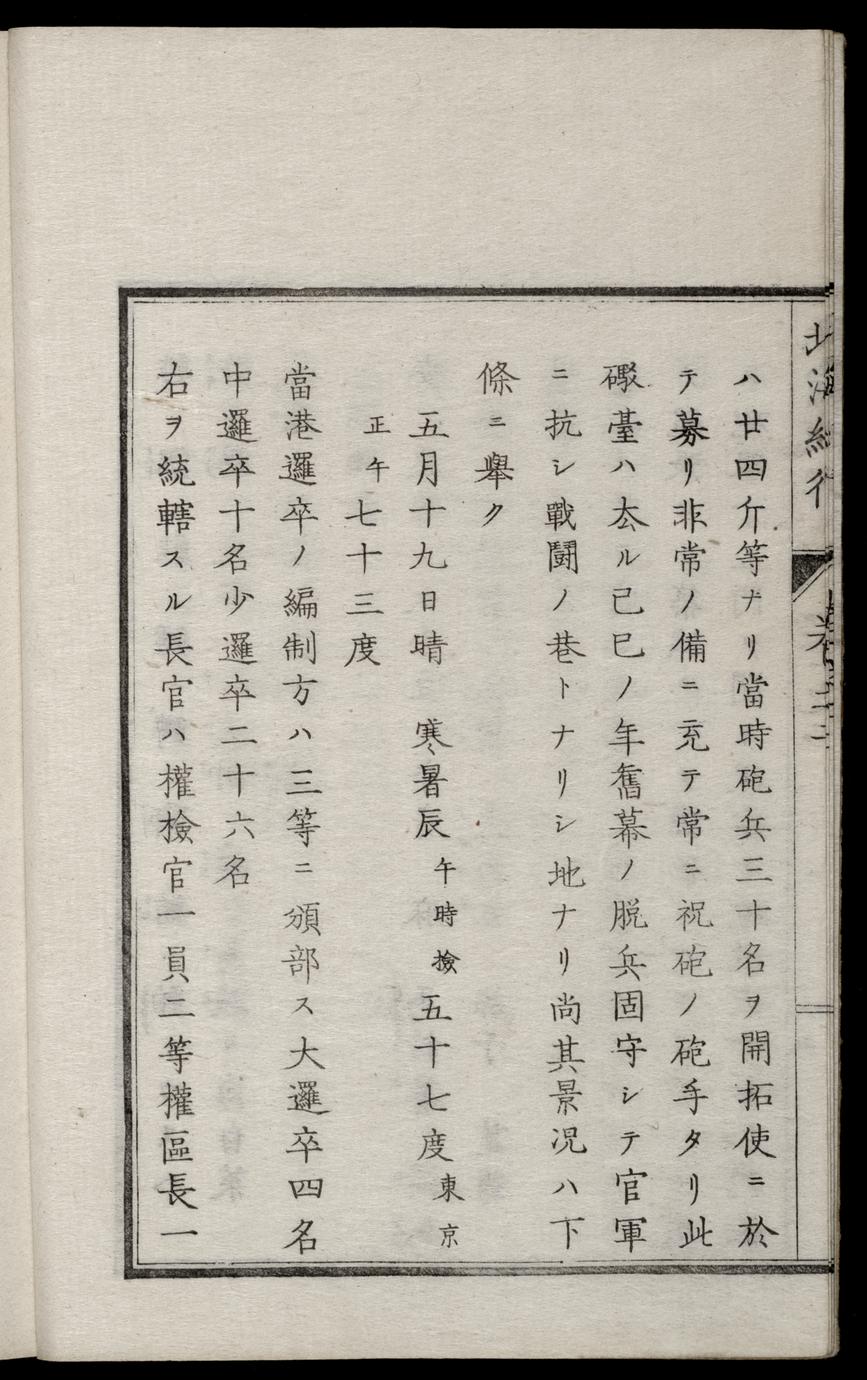 北海紀行
ハ廿四斤等ナリ當時砲兵三十名ヲ開拓使ニ於
テ募リ非常ノ備ニ充テ常ニ祝砲ノ砲手タリ此
礮臺ハ去ル己巳ノ年舊幕ノ脱兵固守シテ官軍
ニ抗シ戰鬪ノ巷トナリシ地ナリ尚其景况ハ下
條ニ舉ク
五月十九日晴 寒暑辰午時檢五十七度東京
正午七十三度
當港邏卒ノ編制方ハ三等ニ頒部ス大邏卒四名
中邏卒十名少邏卒二十六名
右ヲ統轄スル長官ハ權檢官一員二等權區長一